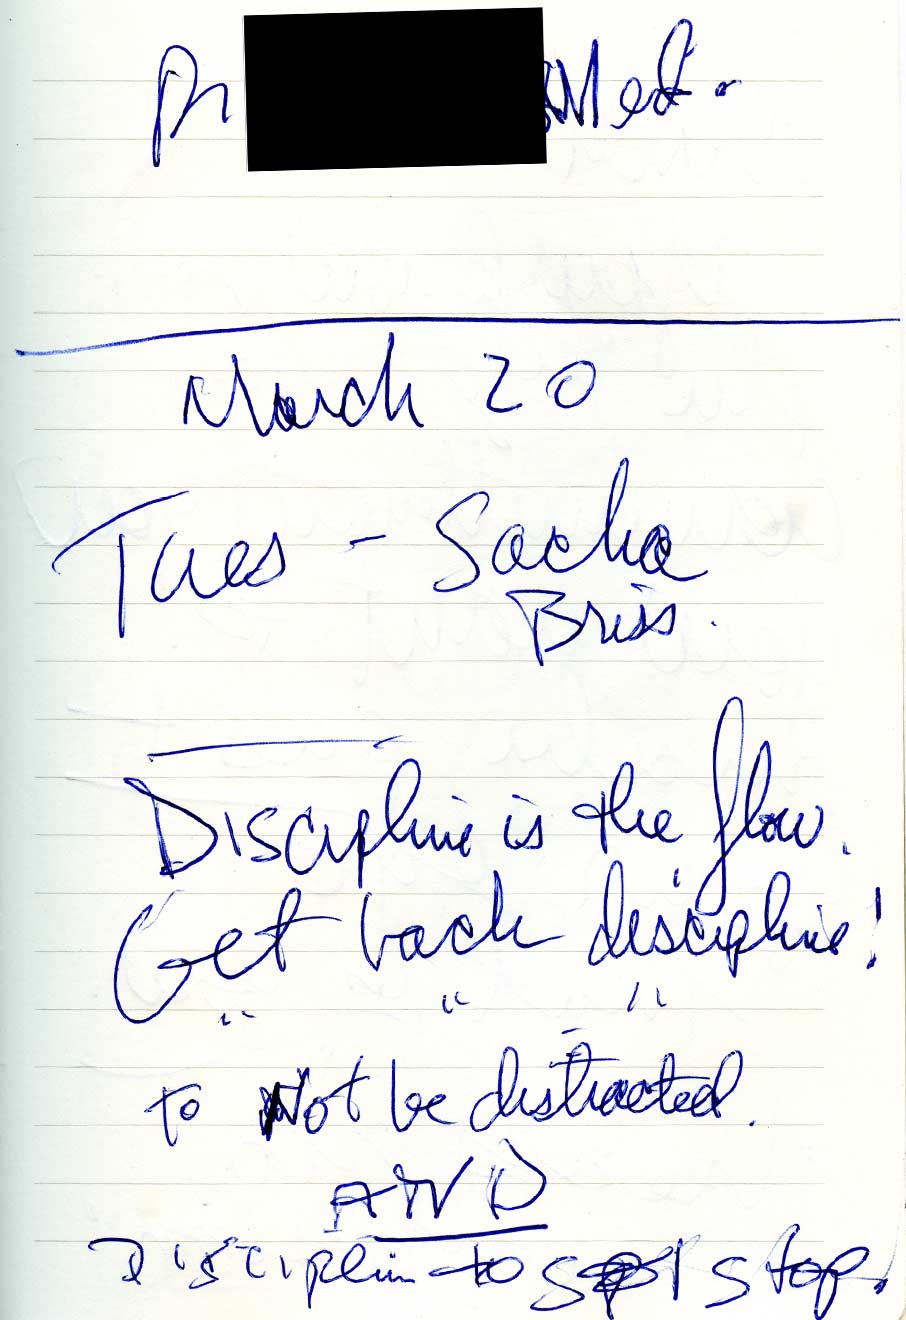 Dr Med.
March 20
Tues - Sacha
Briss.
Discipline is the flow.
Get back discipline!
" " "
to Not be distracted.
AND
Disciplin to stop.